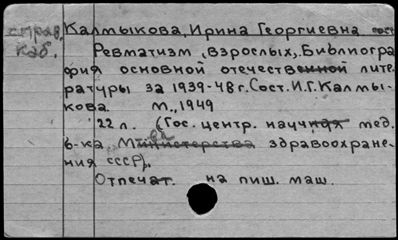 справ. Калмыкова, Ирина Георгиевна сост.
каб. Ревматизм (взрослых). Библиогра-
фия основной отечественной лите-
ратуры за 1939-48 г. Сост. И.Г. Калмы-
кова. М., 1949
22 л. (Гос. центр. научная мед.
б-ка М-ва Министерства здравоохране-
ния СССР).
Отпечат. на пиш. маш.